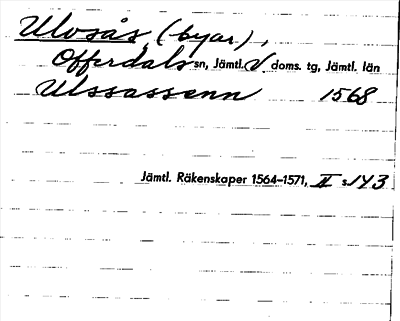 Ulvsås, (byar),
Offerdals sn, Jämtl. V doms. tg, Jämtl. län
Ulssassenn 1568
Jämtl. Räkenskaper 1564–1571, II s. 143